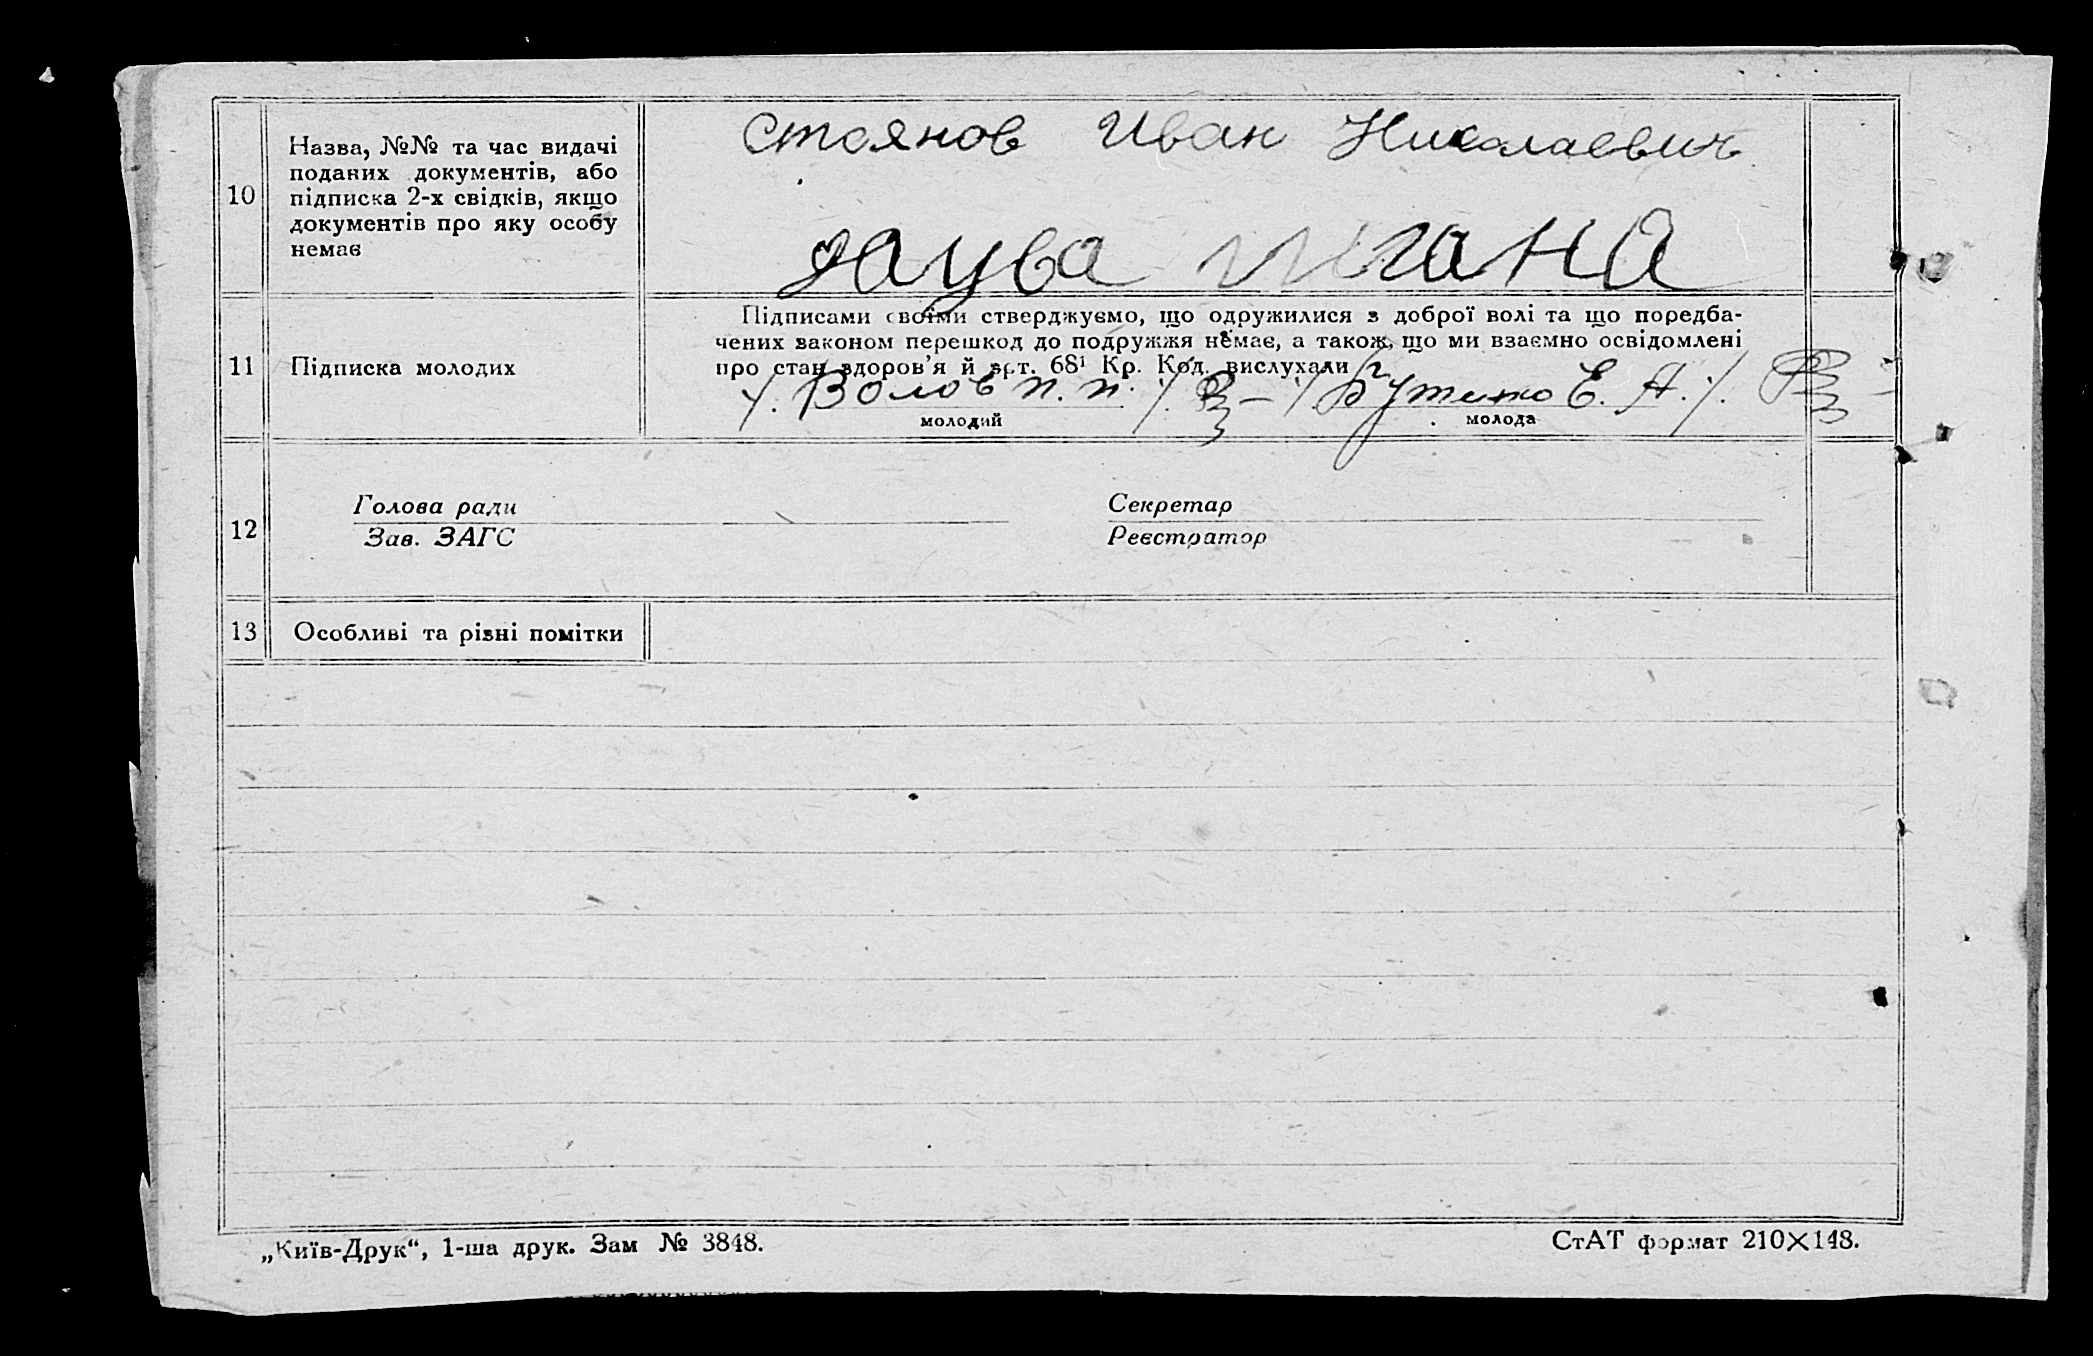 10
Назва, №№ та час видачі
поданих документів, або
підписка 2-х свідків, якщо
документів про яку особу
немає
Стоянов Иван Николаевич
11
Підписка молодих
Підписами своїми стверджуємо, що одружилися з доброї волі та що поредба-
чених законом перешкод до подружжя немає, а також, що ми взаємно освідомлені
про стан здоров'я й арт. 68¹ Кр. Код. вислухали
Волов П. П. Е. А.
молодий молода
12
Голова ради Секретар
Зав. ЗАГС Реєстратор
13
Особливі та різні помітки
„Київ-Друк“, 1-ша друк. Зам № 3848. СтАТ формат 210×148.